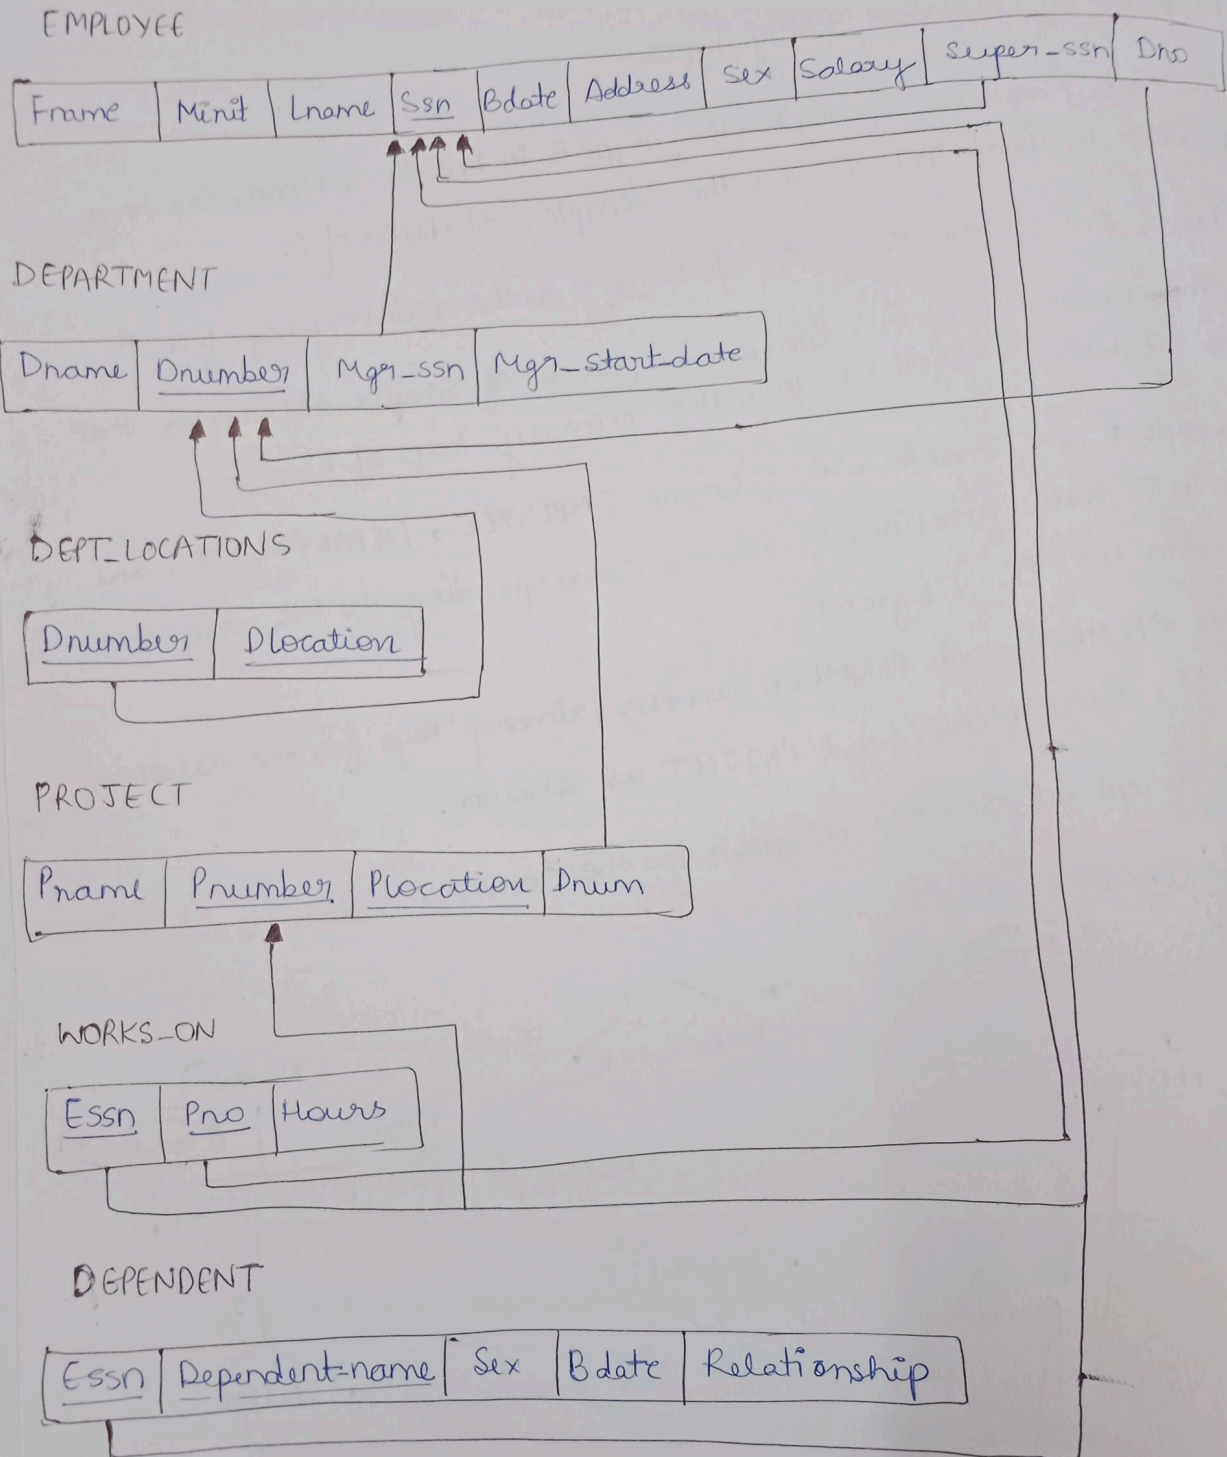 EMPLOYEE
Fname Minit Lname Ssn Bdate Address Sex Salary Super-ssn Dno
DEPARTMENT
Dname Dnumber Mgr-ssn Mgr-start-date
DEPT_LOCATIONS
Dnumber Dlocation
PROJECT
Pname Pnumber Plocation Dnum
WORKS-ON
Essn Pno Hours
DEPENDENT
Essn Dependent-name Sex Bdate Relationship